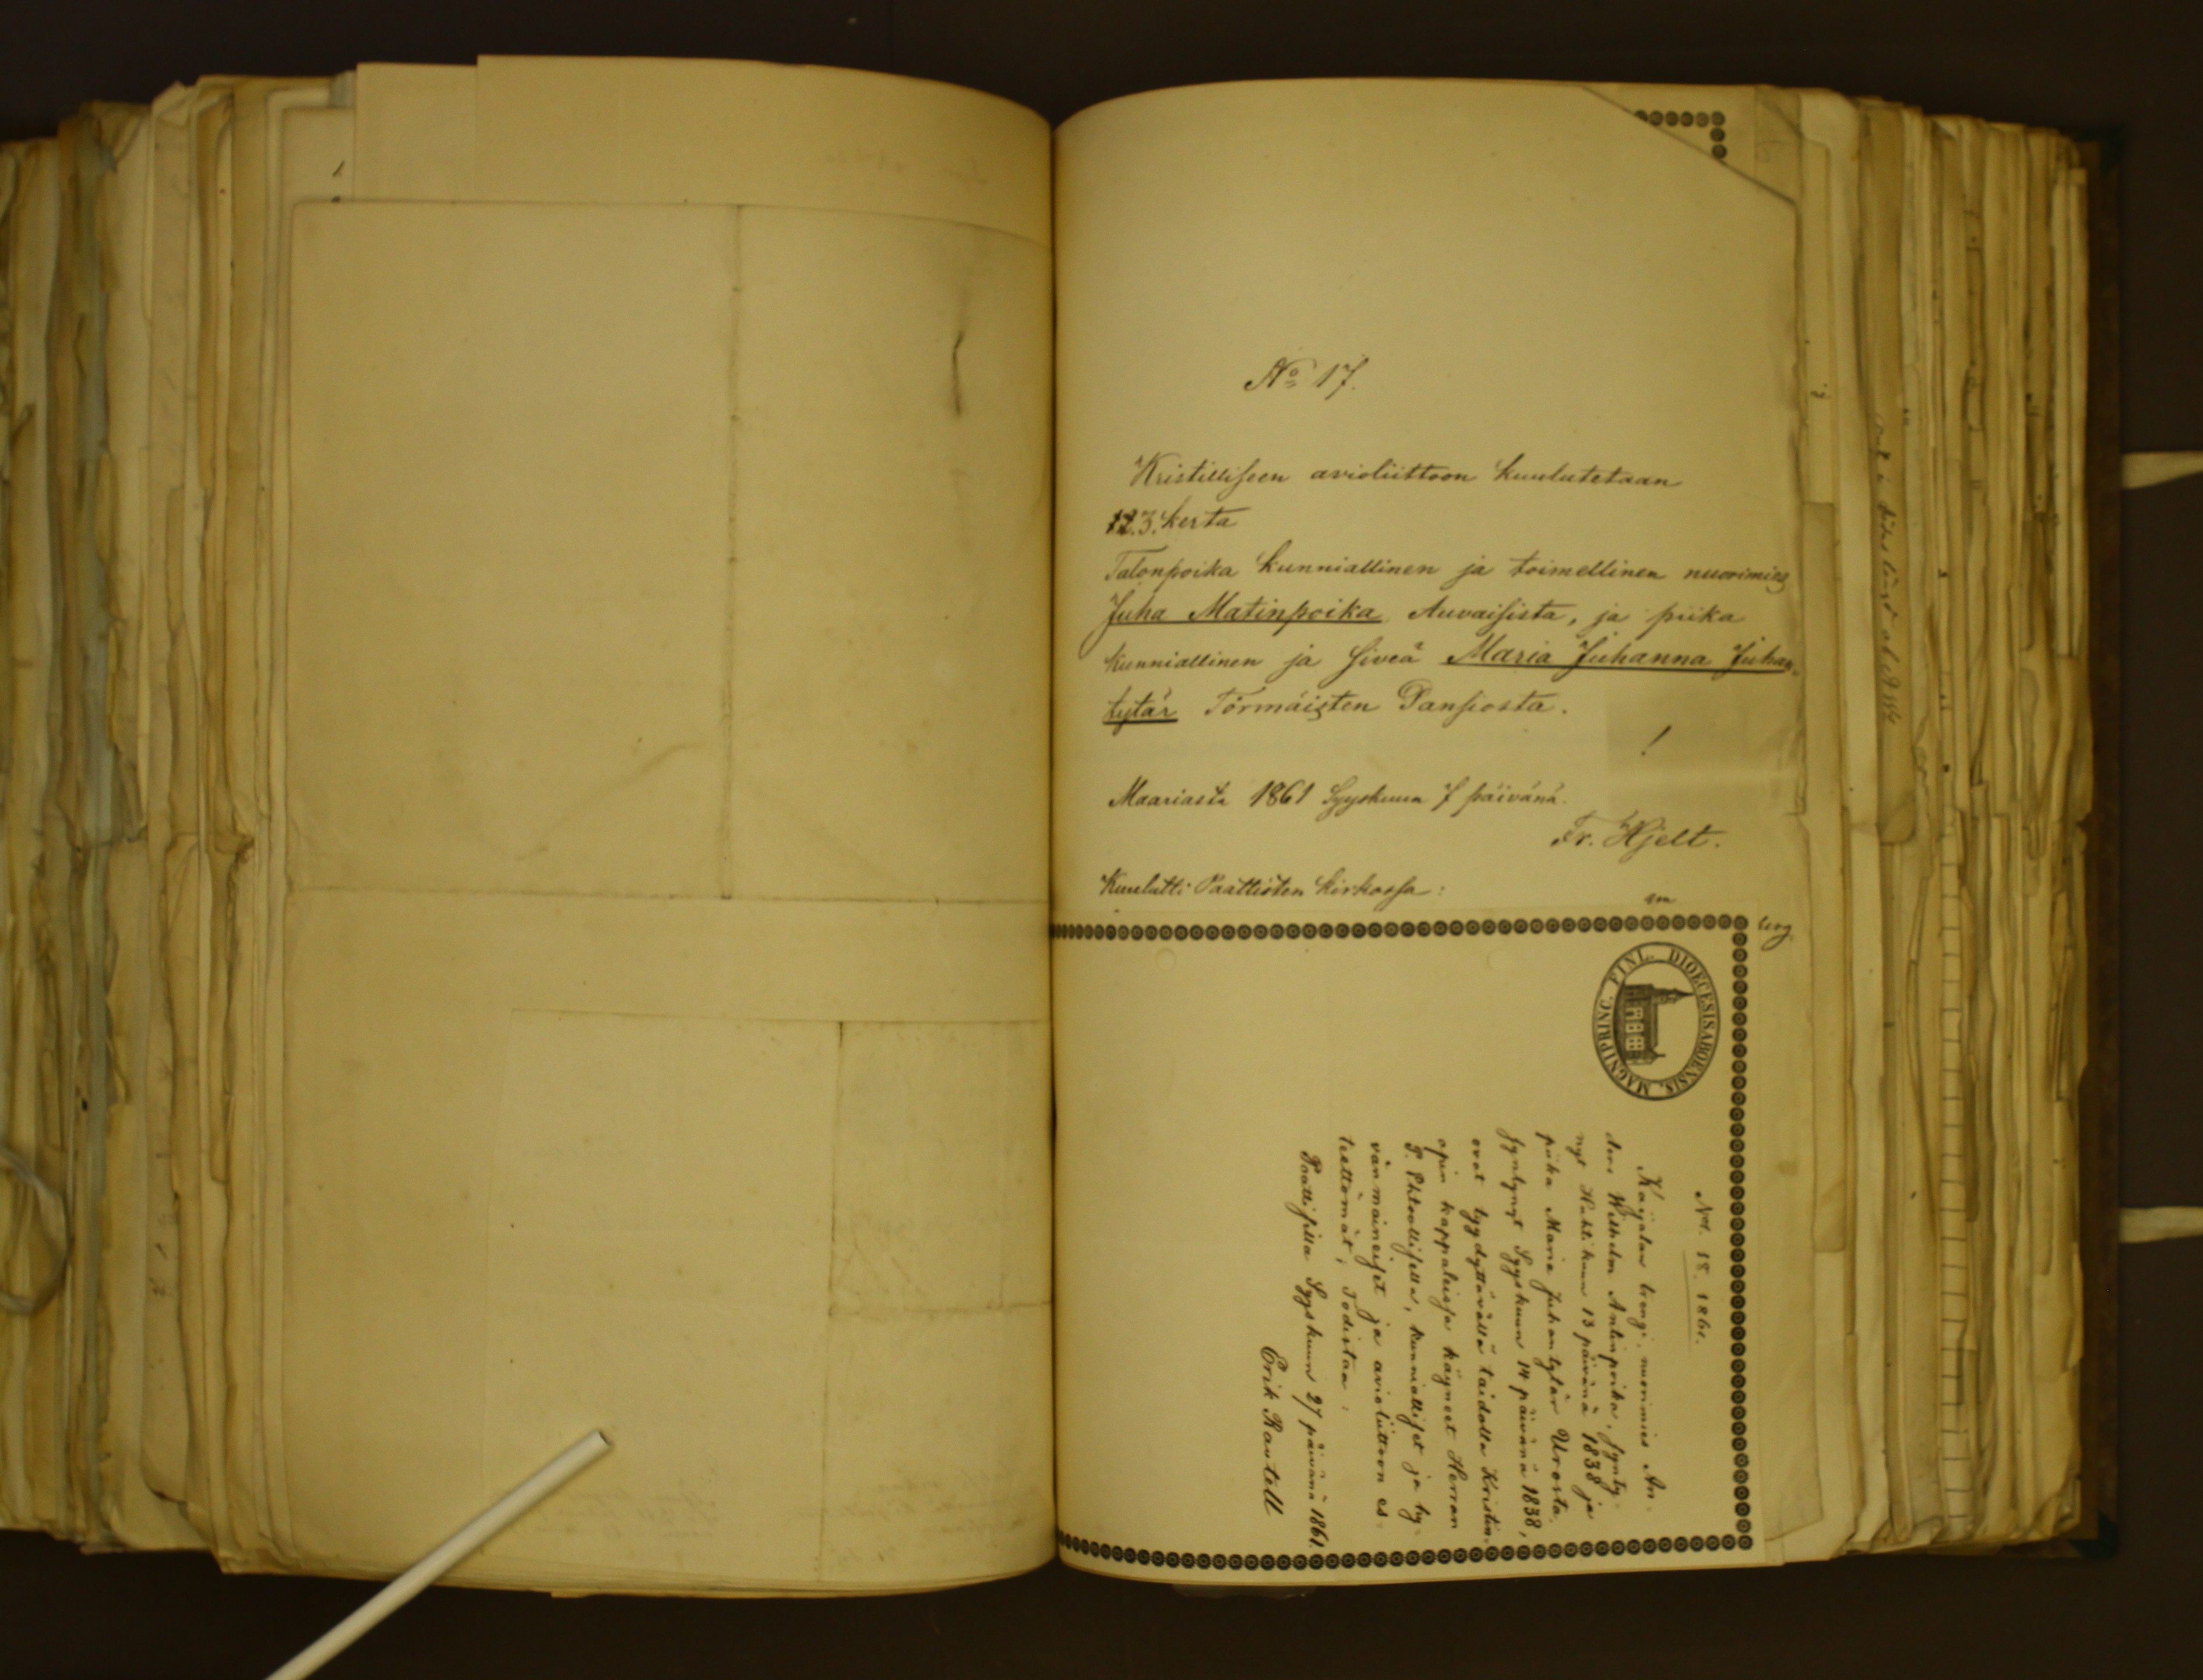 No 17.
Kristilliseen avioliittoon kuulutetaan
1.2.3. kerta
Talonpoika kunniallinen ja toimellinen nuorimies
Juha Matinpoika Auvaisista, ja piika
kunniallinen ja siveä Maria Juhanna Juhan-
tytär Törmäisten Pansiosta.
!
Maariasta 1861 Syyskuun 7 päivänä.
Fr. Hjelt.
Kuulutti Paattisten kirkossa:
DIOECESIS ABOENSIS. MAGNI PRINC. FINL.
No 18. 1861.
Kaijalan trengi, nuorimies An-
ders Wilhelm Antinpoika, synty-
nyt Huhtikuun 13 päivänä 1838 ja
piika Maria Juhantytär Urosta,
syntynyt Syyskuun 14 päivänä 1838,
ovat tyydyttävällä taidolla Kristin-
opin kappaleissa käyneet Herran
P. Ehtoollisella, kunnialliset ja hy-
vänmaineiset ja avioliittoon es-
teettömät; Todistaa:
Paattisilla Syyskuun 27 päivänä 1861.
Erik Rautell